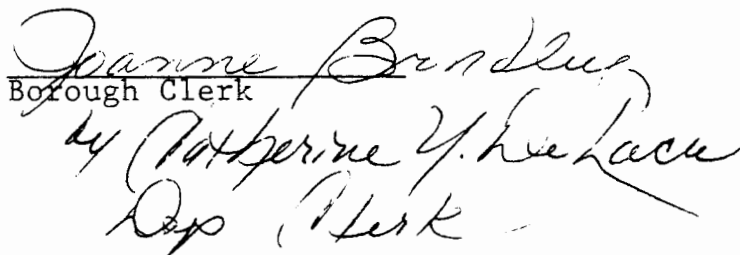 Joanne Bradley
Borough Clerk
by Katherine Y. De
Dep Clerk